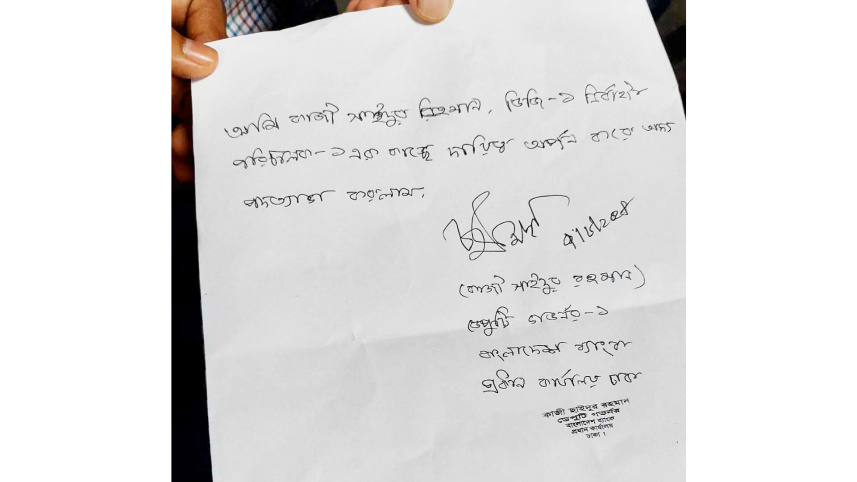 আমি কাজী সাইদুর রহমান, ডিজি-১ নির্বাহী
পরিচালক-১ এর কাছে দায়িত্ব অর্পন করে অদ্য
পদত্যাগ করলাম.
(কাজী সাইদুর রহমান)
ডেপুটি গভর্নর-১
বাংলাদেশ ব্যাংক
প্রধান কার্যালয় ঢাকা
কাজী ছাইদুর রহমান
ডেপুটি গভর্নর
বাংলাদেশ ব্যাংক
প্রধান কার্যালয়
ঢাকা।